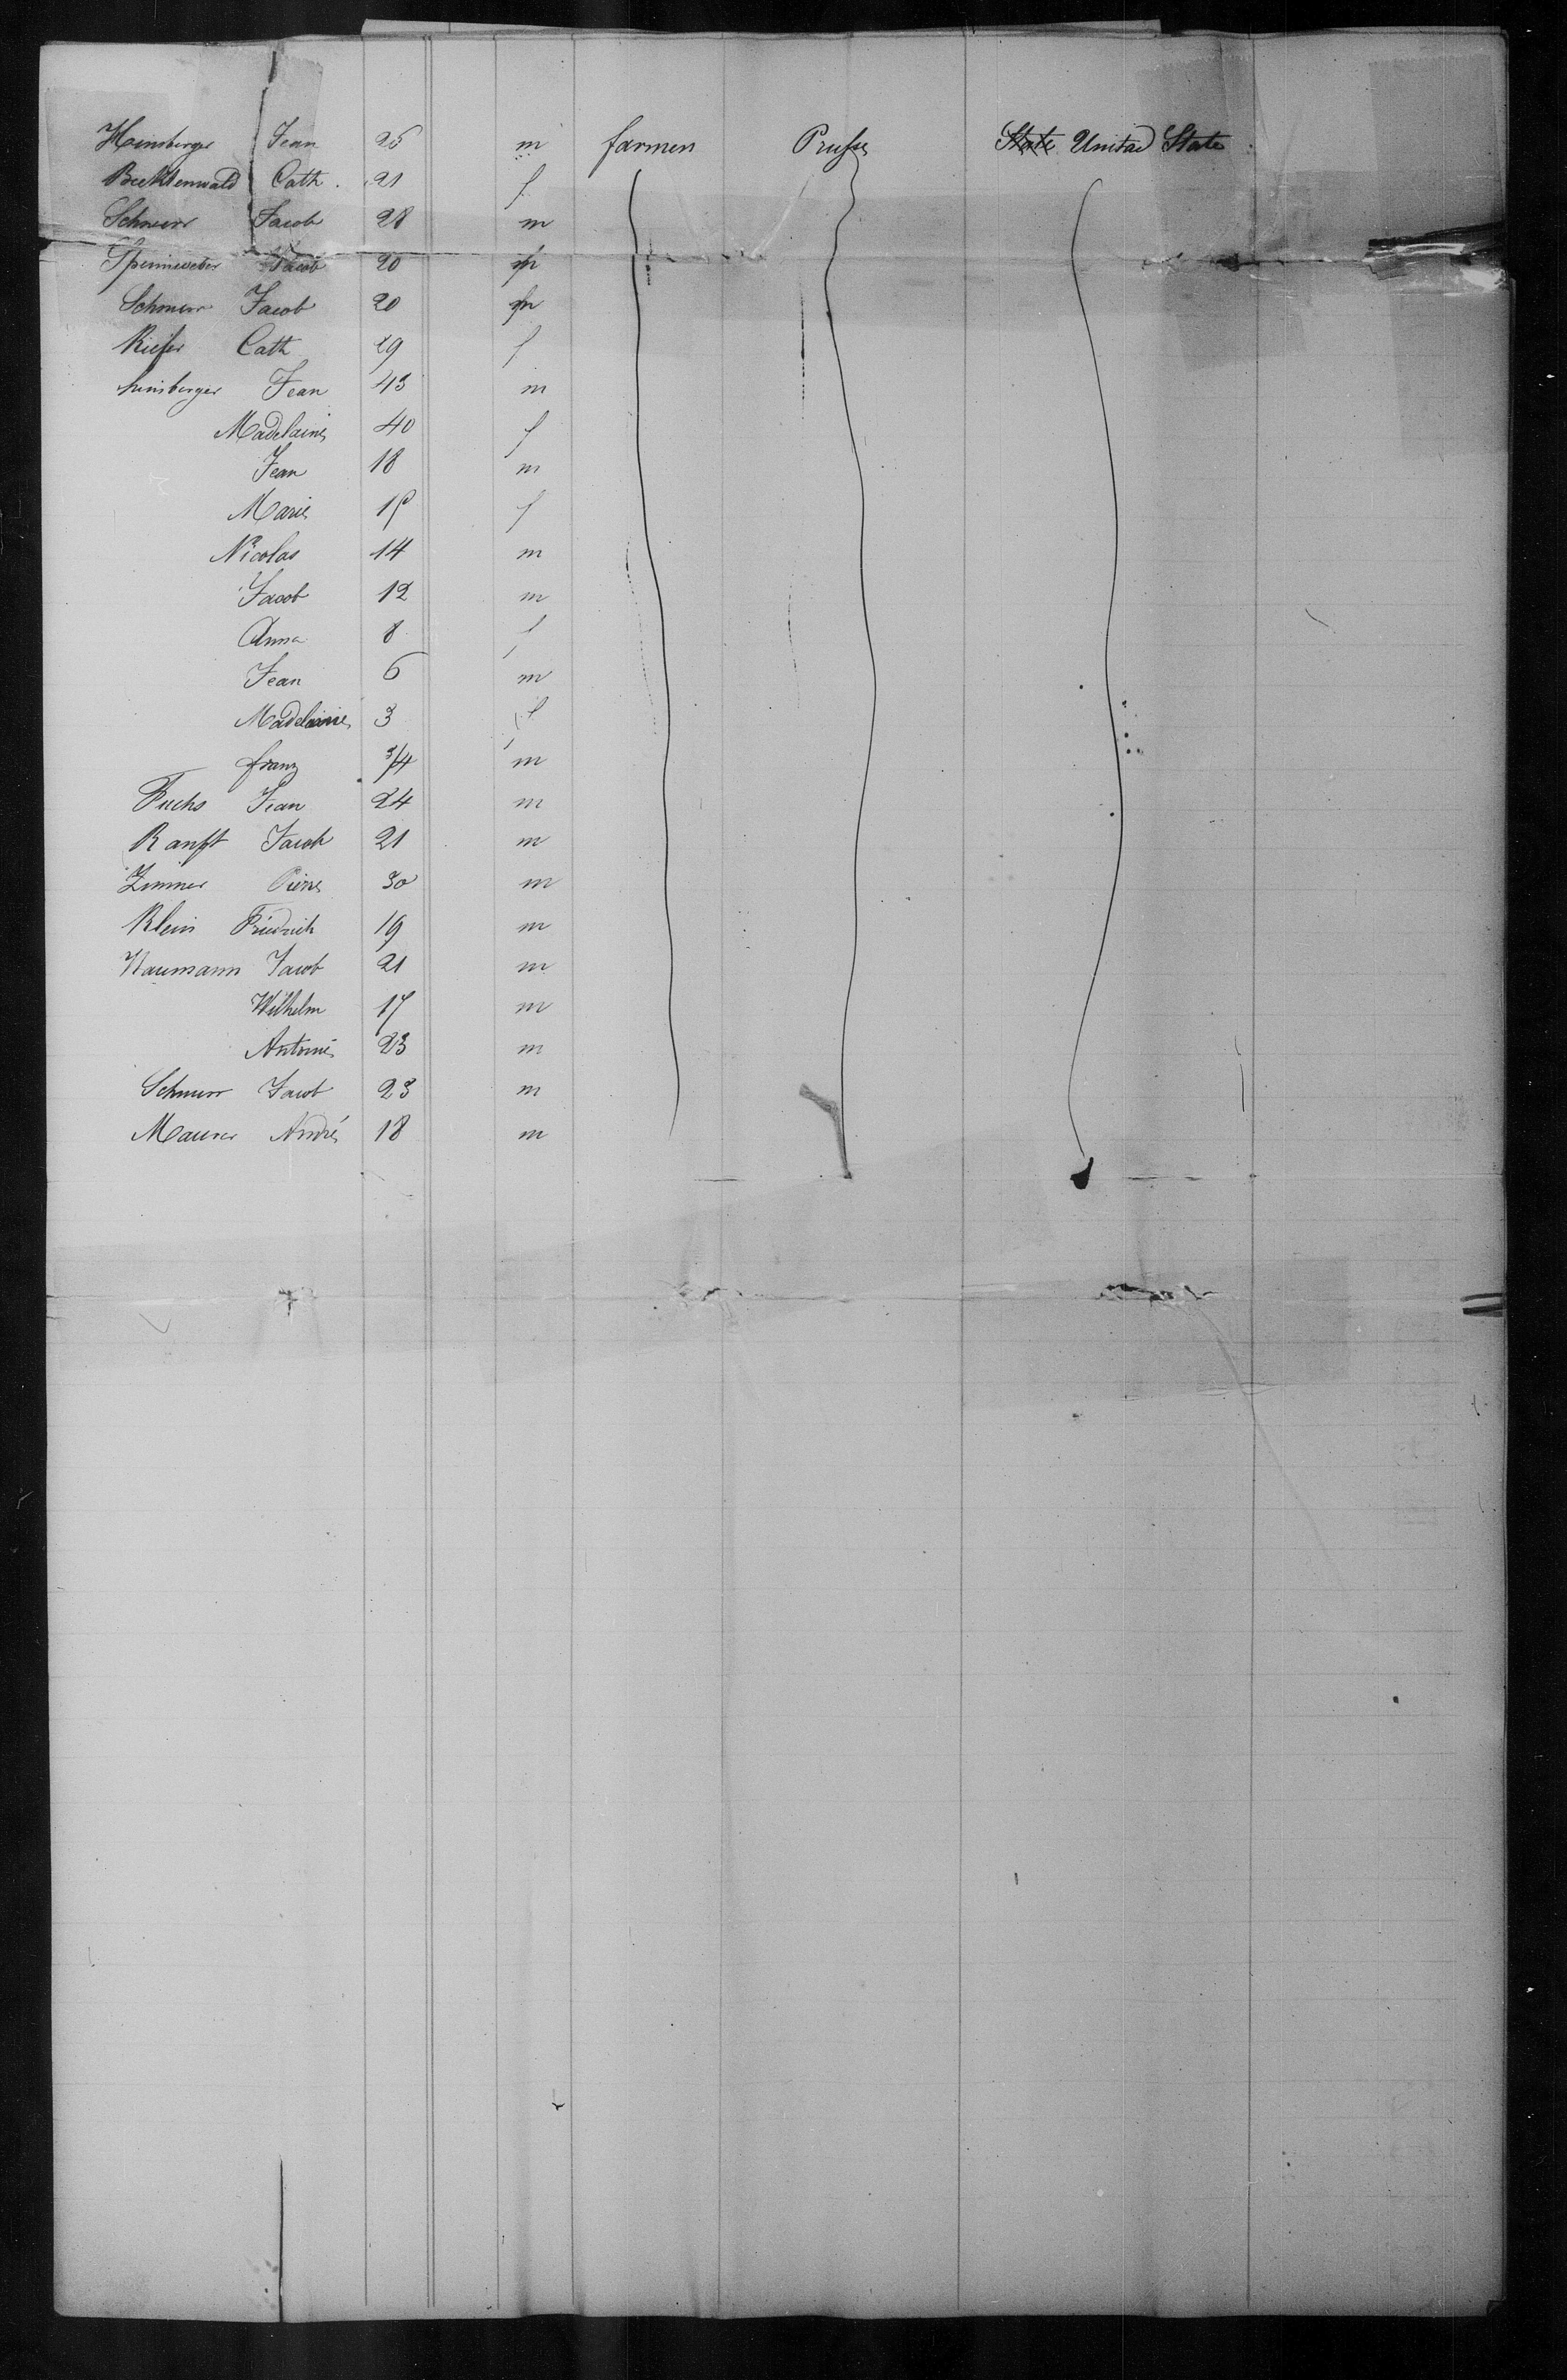 Heinsberger Jean 25 m farmen Prusse State United State
Becktenwald Cath. 21 f
Schnurr Jacob 28 m
Spenneweber Jacob 20 m
Schnurr Jacob 20 m
Kiefer Cath 29 f
heinsberger Jean 43 m
Madelaine 40 f
Jean 18 m
Marie 15 f
Nicolas 14 m
Jacob 12 m
Anna 8 f
Jean 6 m
Madelaine 3 f
franz 3/4 m
Fuchs Jean 24 m
Ranft Jacob 21 m
Zimmer Pierre 30 m
Klein Friedrich 19 m
Naumann Jacob 21 m
Wilhelm 17 m
Antoine 23 m
Schnurr Jacob 23 m
Maurer André 18 m